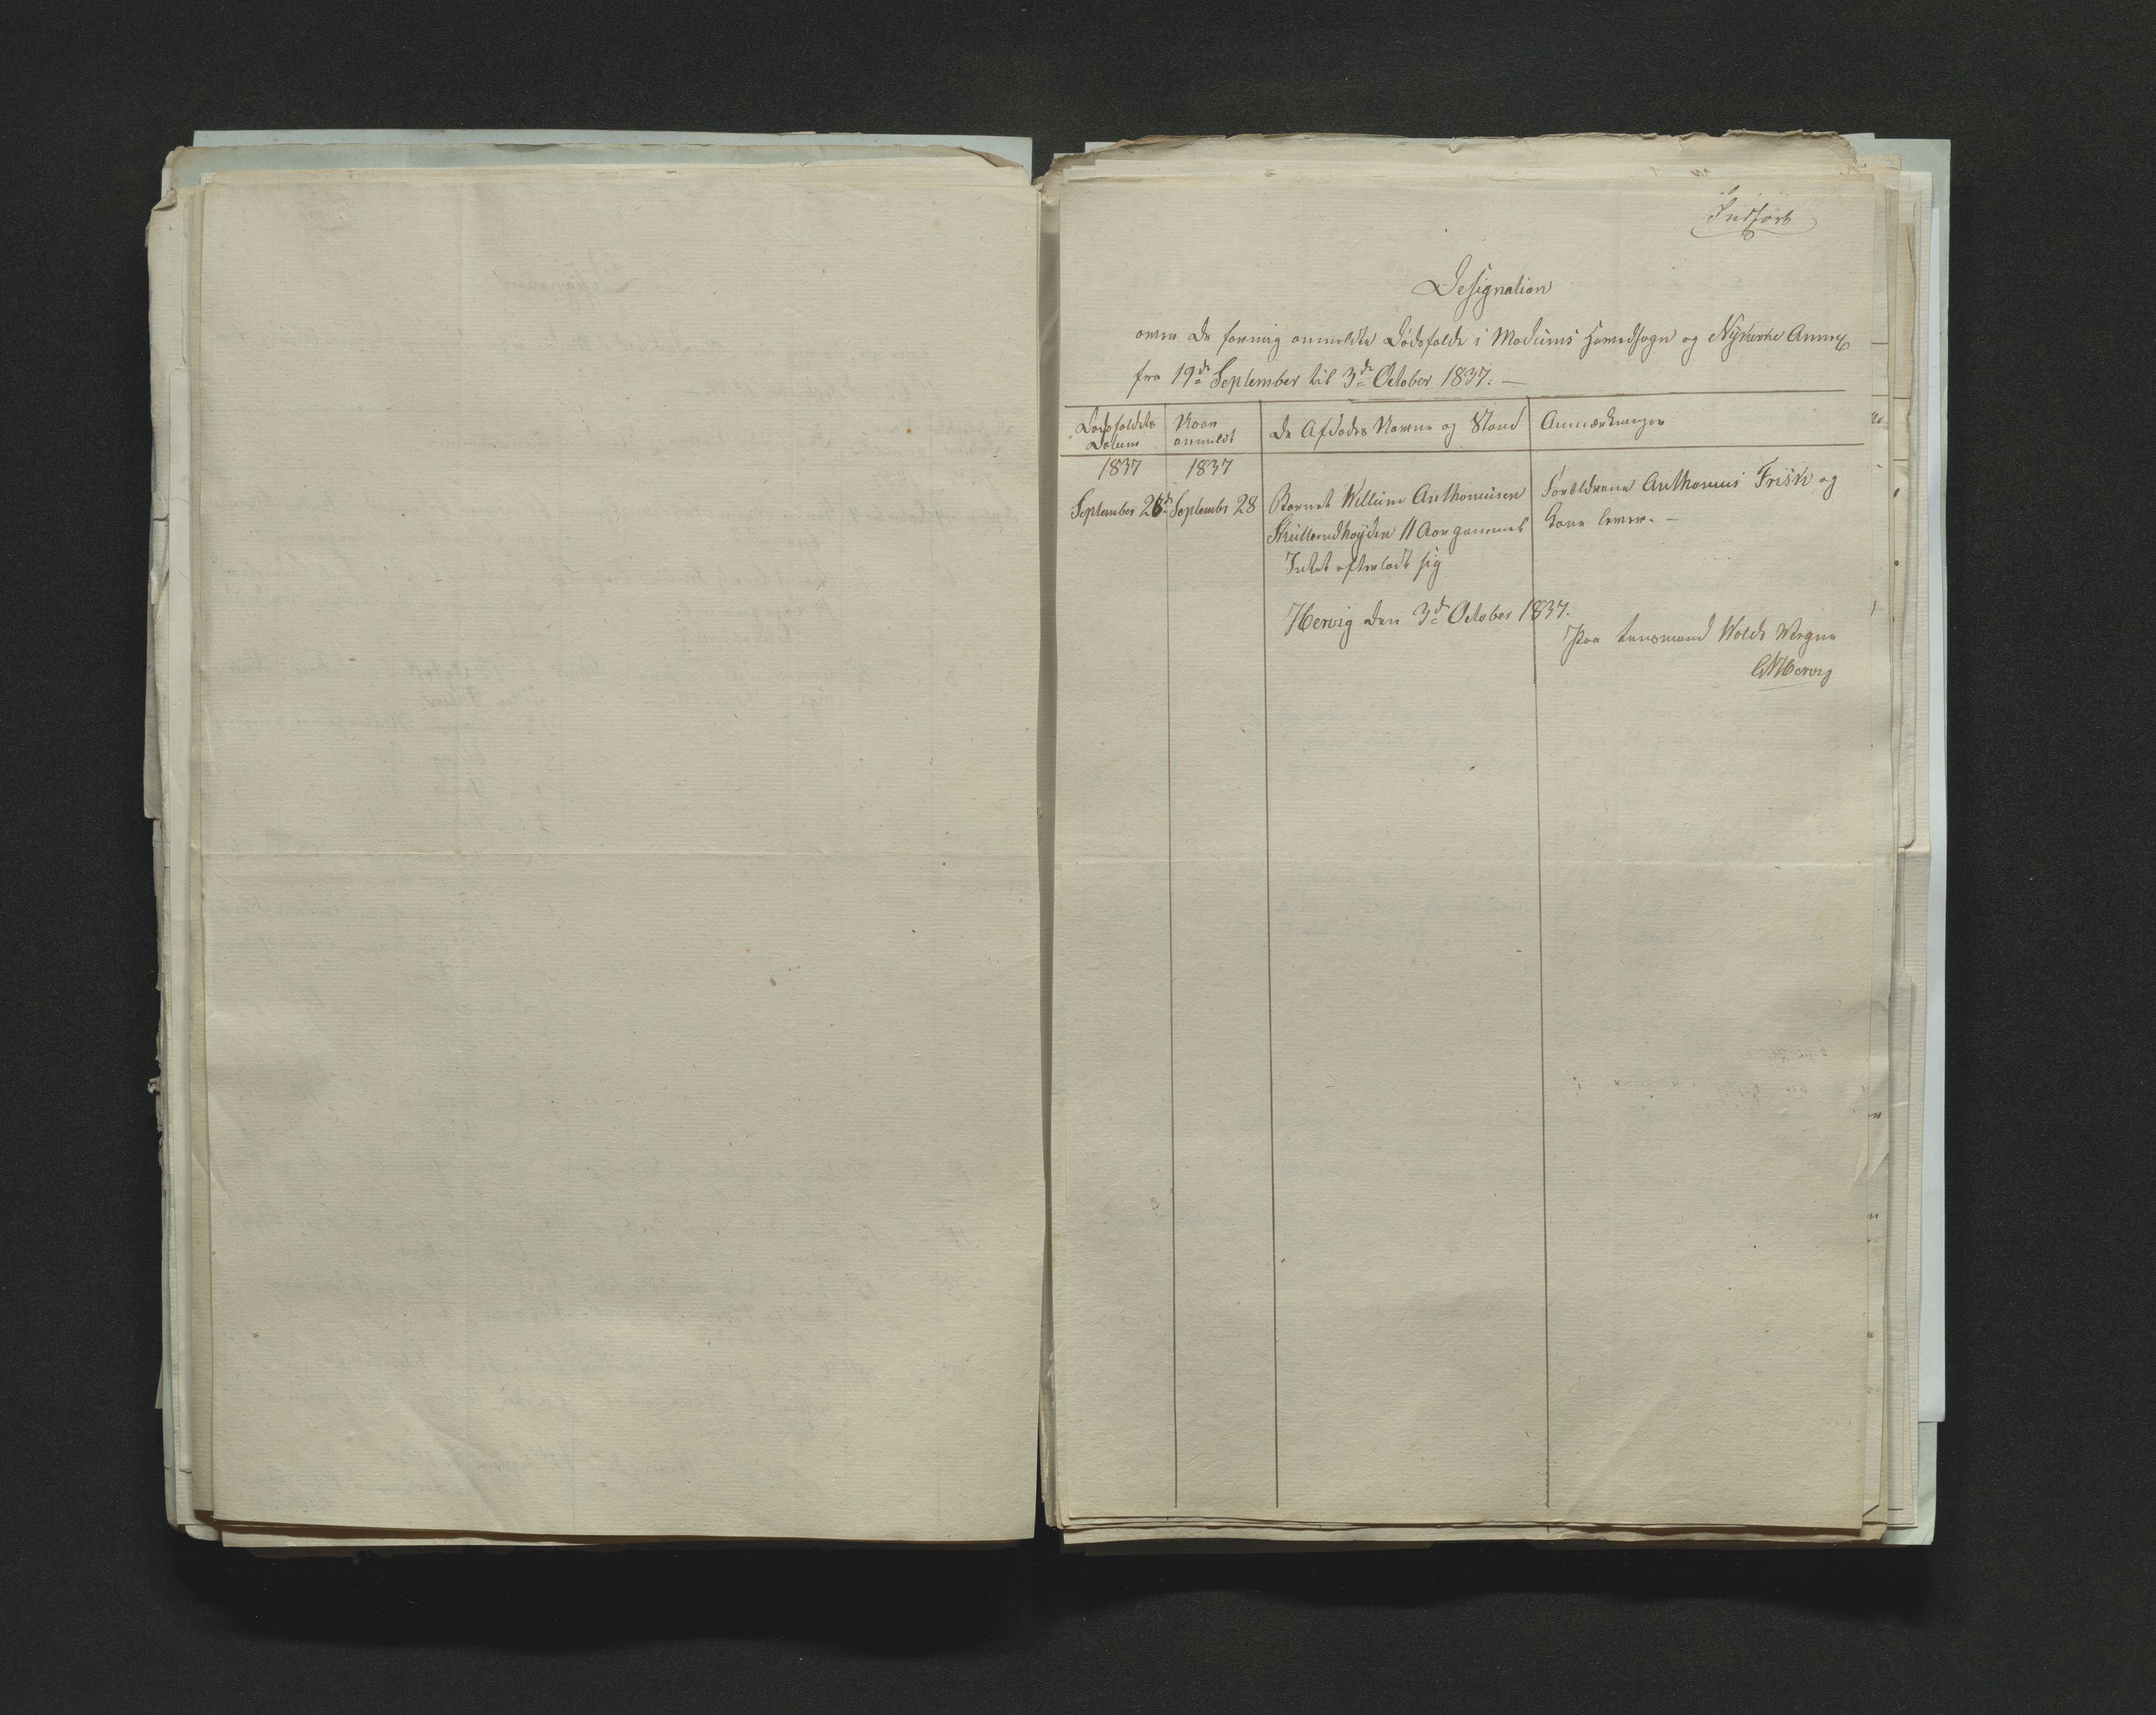 Indført
Designation
over de for mig anmeldte Dødsfalde i Modums Hovedsogn og Nykirke Annex
fra 19de September til 3de October 1837. —
Dødsfaldets Datum
Naar anmeldt
De Afdødes Navne og Stand
Anmærkninger
1837
1837
September 26de
Septembr 28
Barnet Willum Anthoniusen
Skullerudhøyden 11 Aar gammel
Intet efterladt sig
Forældrene Anthonius Frisk og
Kone lever. —
Hervig den 3de October 1837.
Paa Lensmand Wolds Vegne
Hervig